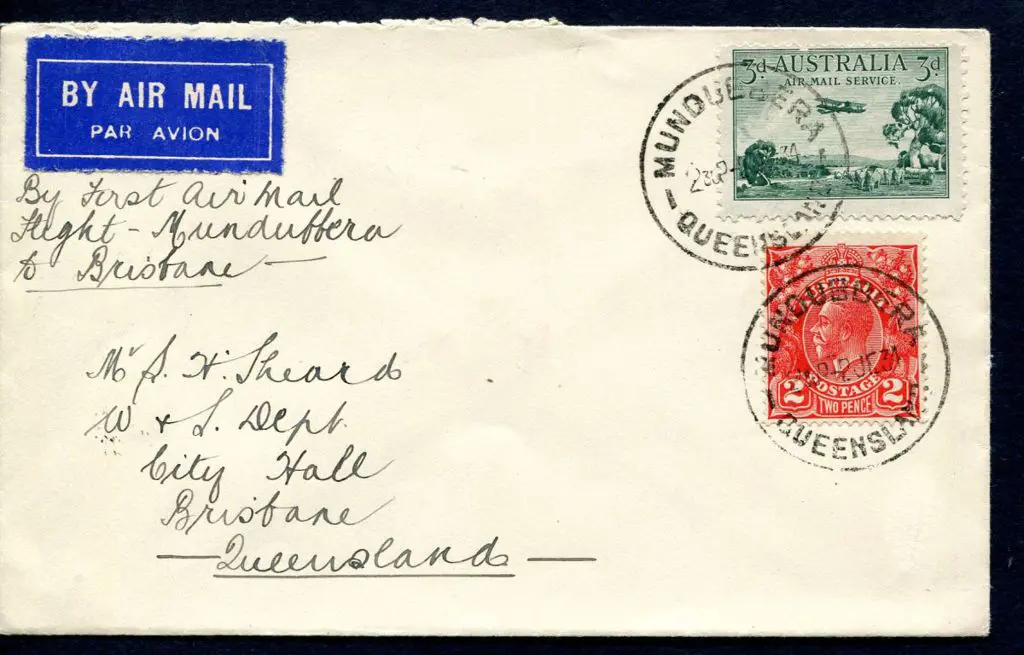 BY AIR MAIL
PAR AVION
3d AUSTRALIA 3d
AIR MAIL SERVICE
MUNDUBBERA
QUEENSLAND
By First Air Mail
Flight - Mundubbera
to Brisbane -
MUNDUBBERA
QUEENSLAND
POSTAGE
2 TWO PENCE 2
Mr S. H. Sheard
W & S. Dept.
City Hall
Brisbane
- Queensland -